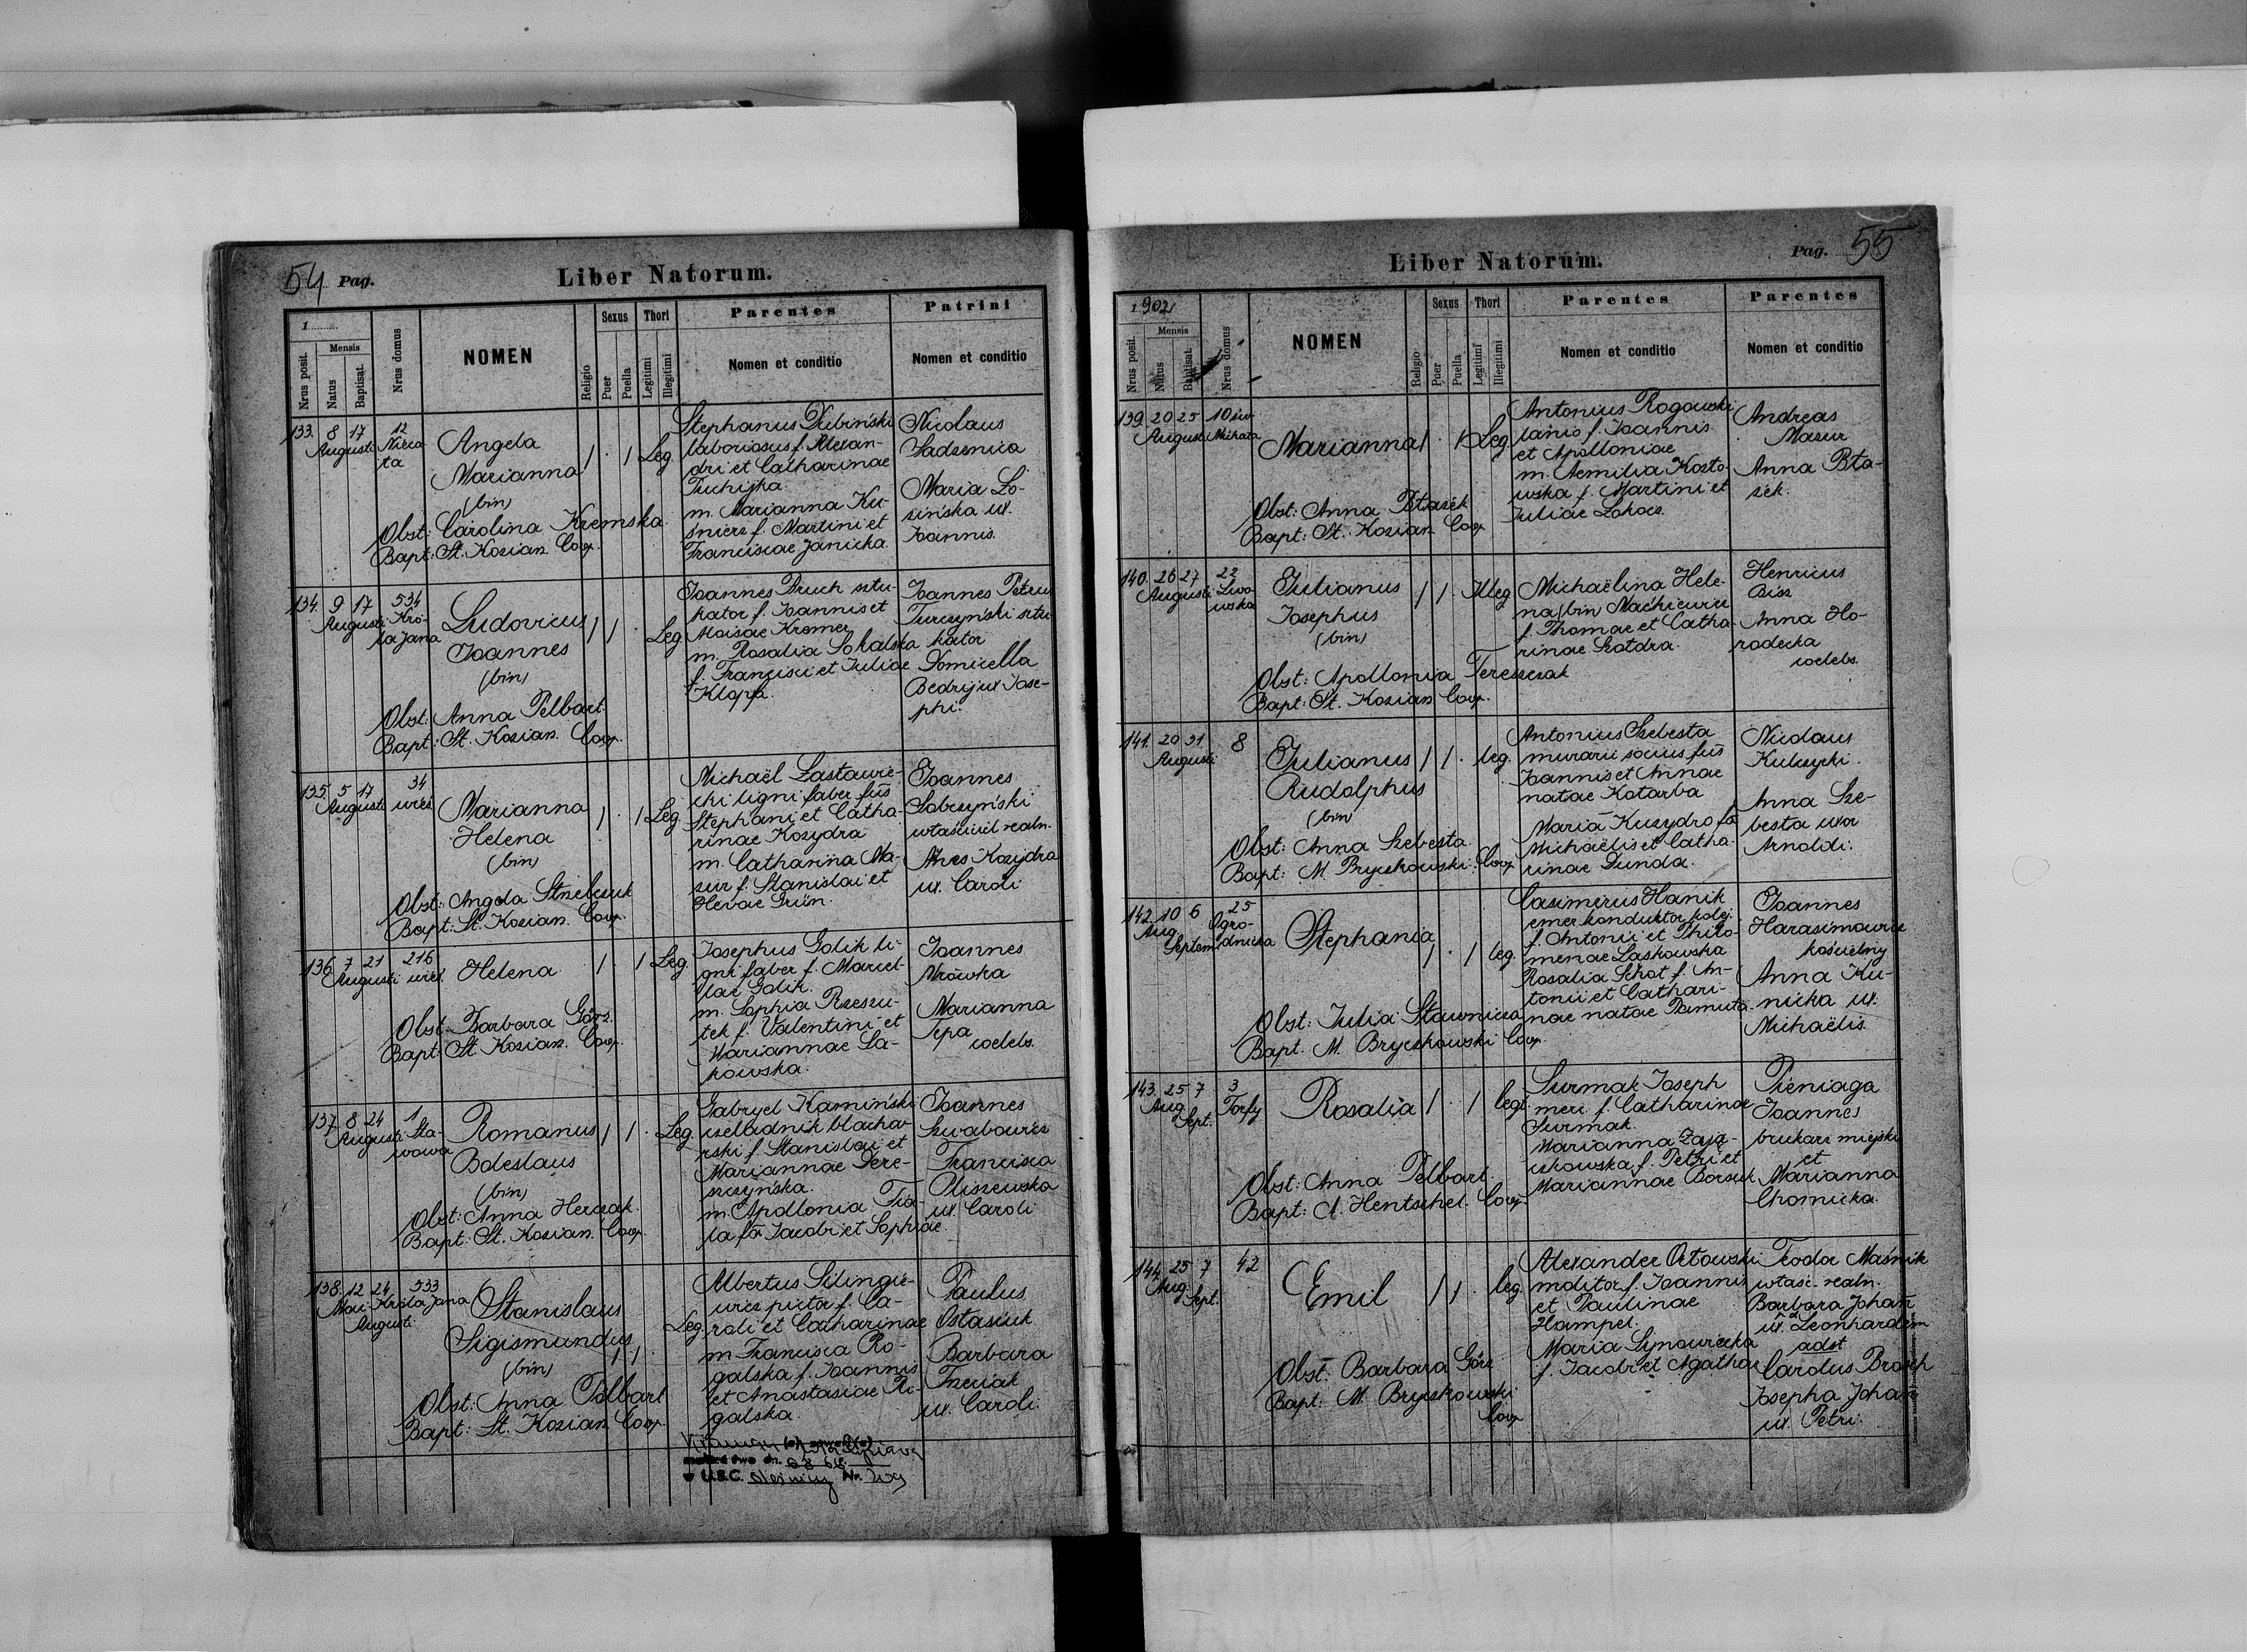 54 Pag.
Liber Natorum.
1
Nrus posit.
Mensis
Natus
Baptisat.
Nrus domus
NOMEN
Religio
Sexus
Puer
Puella
Thori
Legitimi
Illegitimi
Parentes
Nomen et conditio
Patrini
Nomen et conditio
133. 8 17 12
Augusti
Angela
Marianna
(bin)
Obst: Carolina Kremska.
Bapt: St. Kozian. Coop.
1 . 1 Leg.
Stephanus Dubiński
laboriosus f. Alexan-
dri et Catharinae
m. Marianna Ku-
śnierz f. Martini et
Franciscae Janicka.
Nicolaus
Sadzenica
Maria Ło-
zińska ux.
Joannis.
134. 9 17 534
Augusti Kró-
la Jana
Ludovicus
Joannes
(bin)
Obst: Anna Pelbart.
Bapt: St. Kozian. Coop.
1 1 . Leg
Joannes Pruch sztu-
kator f. Joannis et
Kremer
m. Rosalia Sokalska
f. Francisci et Juliae
Klopa.
Joannes Petrus
Turczyński sztu-
kator
Domicella
Bedrij ux Jose-
phi.
135. 5 17 34
Augusti
Marianna
Helena
(bin)
Obst: Angela Strzelczuk
Bapt: St. Kozian. Coop.
1 . 1 Leg.
Michaël Łastawie-
cki ligni faber fus
Stephani et Catha-
rinae Kozydra
m. Catharina Ma-
zur f. Stanislai et
Grün.
Joannes
Sobczyński
właściciel realn.
Agnes Kozydra
ux. Caroli
136. 7 21 216
Augusti
Helena.
Obst: Barbara Górz.
Bapt: St. Kozian. Coop.
1 . 1 Leg.
Josephus Golik li-
gni faber f. Marcel-
lae Golik.
m. Sophia Rzeszu-
tek f. Valentini et
Mariannae Ła-
kowska.
Joannes
Mrówka
Marianna
Tepa
coelebs.
137. 8 24 1
Augusti
Romanus
Boleslaus
(bin)
Obst: Anna Herczak.
Bapt: St. Kozian. Coop.
1 1 . Leg.
Gabryel Kamiński
czeladnik blacha-
rski f. Stanislai et
Mariannae Dere-
szczyńska.
m. Apollonia Fia-
ła fa Jacobi et Sophiae.
Joannes
Szwabowicz
Francisca
Oliszewska
ux. Caroli
138. 12 24 533
Króla Jana
Augusti
Stanislaus
Sigismundus
(bin)
Obst: Anna Pelbart
Bapt: St. Kozian. Coop.
1 1 . Leg.
Albertus Silingie-
wicz pictor f. Ca-
roli et Catharinae
m. Francisca Ro-
galska f. Joannis
et Anastasiae Ro-
galska
Paulus
Ostasiuk
Barbara
Trzeciak
ux. Caroli.
Liber Natorum.
Pag. 55
1902
Nrus posit.
Mensis
Natus
Baptisat.
Nrus domus
NOMEN
Religio
Sexus
Puer
Puella
Thori
Legitimi
Illegitimi
Parentes
Nomen et conditio
Parentes
Nomen et conditio
139. 20 25 10 św.
Augusti Michała
Marianna
Obst: Anna Ptasék
Bapt: St. Kozian. Coop.
1 . 1 Leg.
Antonius Rogowski
lanio f. Joannis
et Apolloniae
m. Aemilia Kozło-
wska f. Martini et
Juliae Łokocz.
Andreas
Mazur
Anna Pta-
sék.
140. 26 27 22
Augusti Lwo-
wska
Julianus
Josephus
(bin)
Obst: Apollonia Tereszczak
Bapt: St. Kozian Coop.
1 1 . Illeg
Michaëlina Hele-
na (bin) Maćkiewicz
f. Thomae et Catha-
rinae Szołdra.
Henricus
Bisz
Anna Ho-
rodecka
coelebs.
141. 20 31 8
Augusti
Julianus
Rudolphus
(bin)
Obst: Anna Szebesta.
Bapt: M. Bryczkowski. Coop.
1 1 . leg.
Antonius Szebesta
murarii socius fus
Joannis et Annae
natae Kotarba
Maria Kuzydro fa
Michaëlis et Catha-
rinae Dunda.
Nicolaus
Kulczycki.
Anna Sze-
besta uxor
Arnoldi.
142. 10 6 25
Aug. Ogro-
Septem. dnicka
Stephania
Obst: Julia Stawnicza
Bapt. M. Bryczkowski Coop.
1 . 1 leg.
Casimirus Hanik
emer konduktor kolej.
f. Antonii et Philo-
menae Laskowska
Rosalia Schot f. An-
tonii et Cathari-
nae natae Pamuła.
Joannes
Harasimowicz
kościelny
Anna Ku-
nicka ux.
Michaëlis.
143. 25 7 3
Aug. Torfy
Sept.
Rosalia
Obst: Anna Pelbart.
Bapt: A. Hentschel. Coop.
1 . 1 legt.
Surmak Joseph
merc f. Catharinae
Surmak.
Marianna Zają-
czkowska f. Petri et
Mariannae Borsuk.
Pieniaga
Joannes
brukarz miejski
et
Marianna
Chomicka.
144. 25 7 42
Aug.
Sept.
Emil
Obst: Barbara Górz
Bapt: M. Bryczkowski
Coop
1 1 . leg.
Alexander Orłowski
molitor f. Joannis
et Paulinae
Hampel.
Maria Synowiecka
f. Jacobi et Agathae
Teodor Maśnik
właśc. realn.
Barbara Johan
ux. Leonhardim
adst
Carolus Brosch
Josepha Johan
ux. Petri.